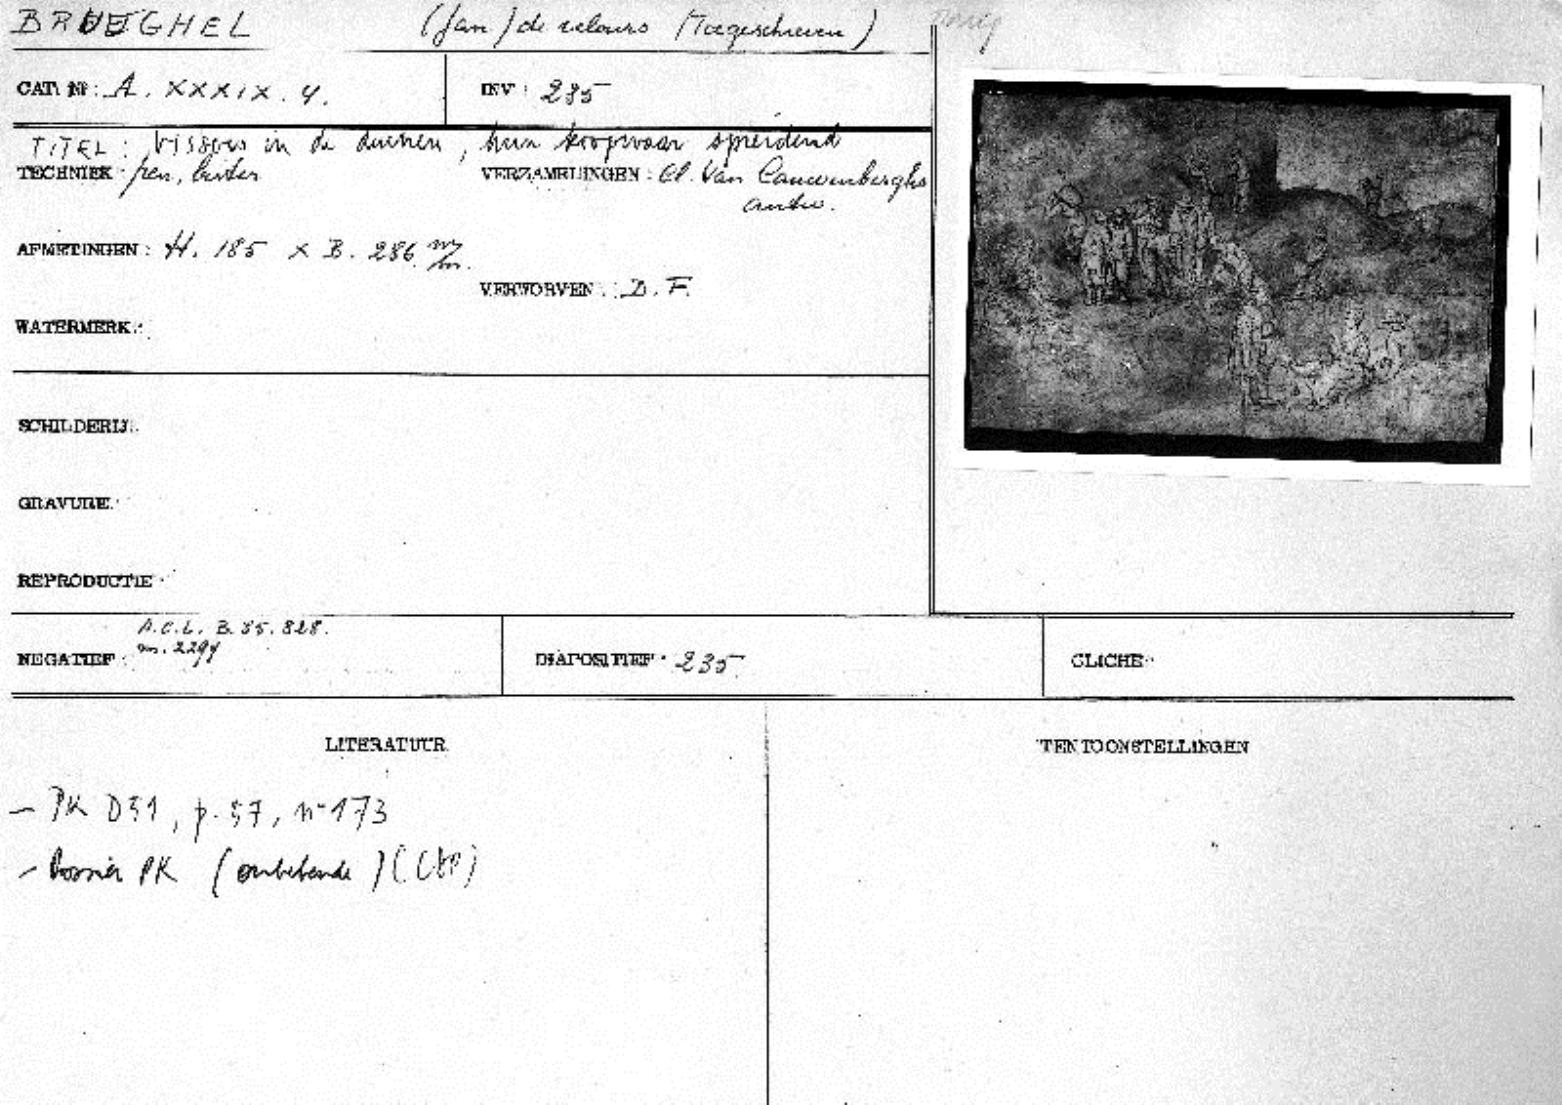 BRUEGHEL (Jan) de velours (Toegeschreven)
CAT. Nr: A. XXXIX. 4. INV: 235
TITEL: Vissers in de duinen, hun koopwaar spreidend
TECHNIEK: pen, bister VERZAMELINGEN: Cl. Van Cauwenberghs
Antw.
AFMETINGEN: H. 185 x B. 286 m/m.
VERWORVEN: D. F.
WATERMERK:
SCHILDERIJ:
GRAVURE:
REPRODUCTIE:
A.C.L. B. 35. 828.
NEGATIEF: DIAPOSITIEF: 235 CLICHE:
LITERATUUR TENTOONSTELLINGEN
- PK D31, p. 57, n° 173
- Dossier PK (onbekende)